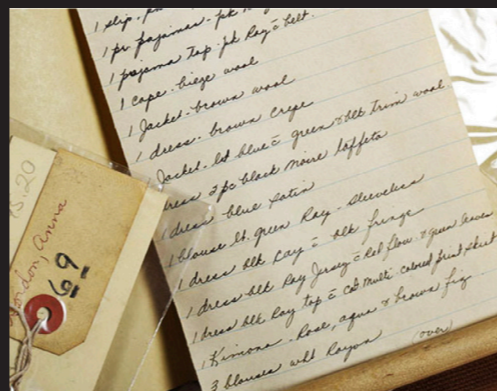 1 slip - pk
1 pr. pajamas - pk
1 pajama top - pk Ray c̄ belt.
1 cape - biege wool
1 Jacket - brown wool
1 dress - brown crepe
Jacket - lt blue c̄ green & blk trim wool
dress 2 pc black moire taffeta
1 dress blue satin
1 blouse lt. green Ray - sleeveless
1 dress blk Ray c̄ blk fringe
1 dress blk Ray Jersey c̄ Red flow. & green leaves
1 dress blk Ray top c̄ multi colored print skirt
1 Kimona - Rose, aqua & brown fig
3 blouses wht Rayon
(over)
15.20
London, Anna
69